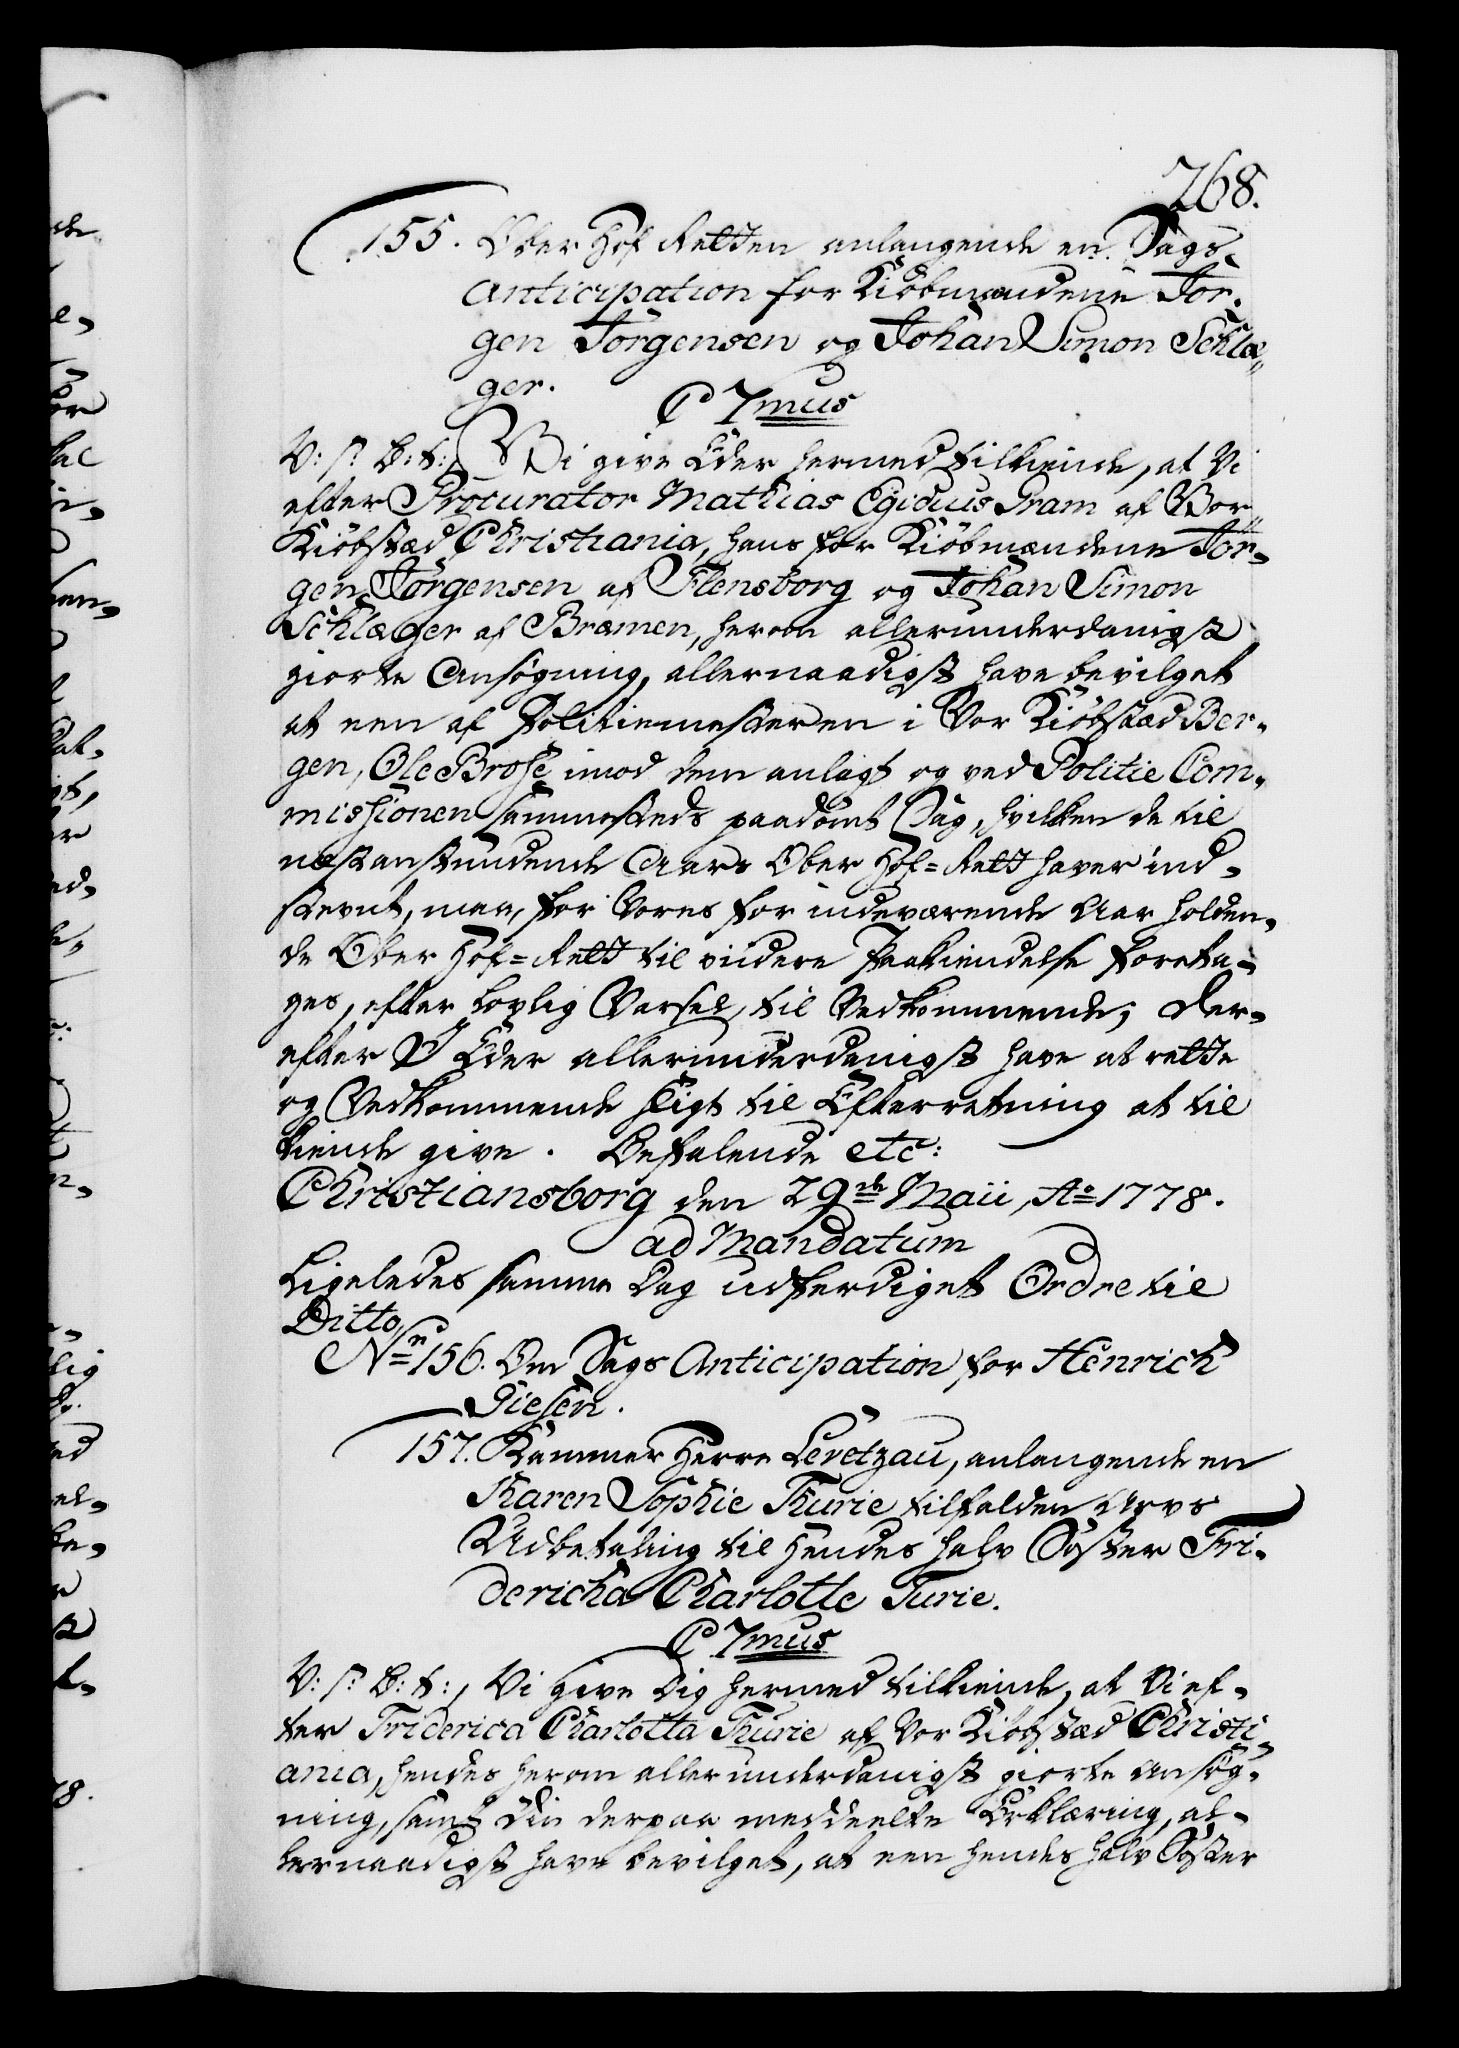 268.
155. Ober Hof Retten anlangende en Sags
Anticipation for Kiöbmændene Jör-
gen Jörgensen og Johan Simon Schlæ-
ger.
C 7mus
V: S: B: t:, Vi give Eder hermed tilkiende, at Vi
efter Procurator Mathias Egidius Gram af Vor
Kiöbstæd Christiania, hans for Kiöbmændene Jör-
gen Jörgensen af Flensborg og Johan Simon
Schlæger af Bræmen, herom allerunderdanigst
giorte Ansögning, allernaadigst have bevilget
at een af Politiemesteren i Vor Kiöbstæd Ber-
gen, Ole Brose imod dem anlagt og ved Politie Com-
missionen sammesteds paadömt Sag, hvilken de til
næstanstundende Aars Ober Hof-Rett haver ind-
stevnt, maae, for Vores for indeværende Aar holden-
de Ober Hof-Rett til viidere Paakiendelse foreta-
ges, efter lovlig Varsel, til Vedkommende; Der-
efter I Eder allerunderdanigst have at rette
og Vedkommende sligt til Efterretning at til
kiende give. Befalende etc:
Christiansborg den 29de Maii, Ao 1778.
ad Mandatum
Ligeledes samme Dag udferdiget Ordre til
Ditto
No 156. Om Sags Anticipation for Henrich
Giesen.
157. Kammer Herre Levetzau, anlangende en
Karen Sophie Thurie tilfalden Arvs
Udbetaling til Hendes halv Söster Fri-
dericha Charlotte Turie.
C 7mus
V: S: B: t:, Vi give Dig hermed tilkiende, at Vi ef-
ter Friderica Charlotta Thurie af Vor Kiöbstæd Christi-
ania, hendes herom allerunderdanigst giorte Ansög-
ning, samt Din derpaa meddeelte Erklæring, al-
lernaadigst have bevilget, at een hendes halv Söster